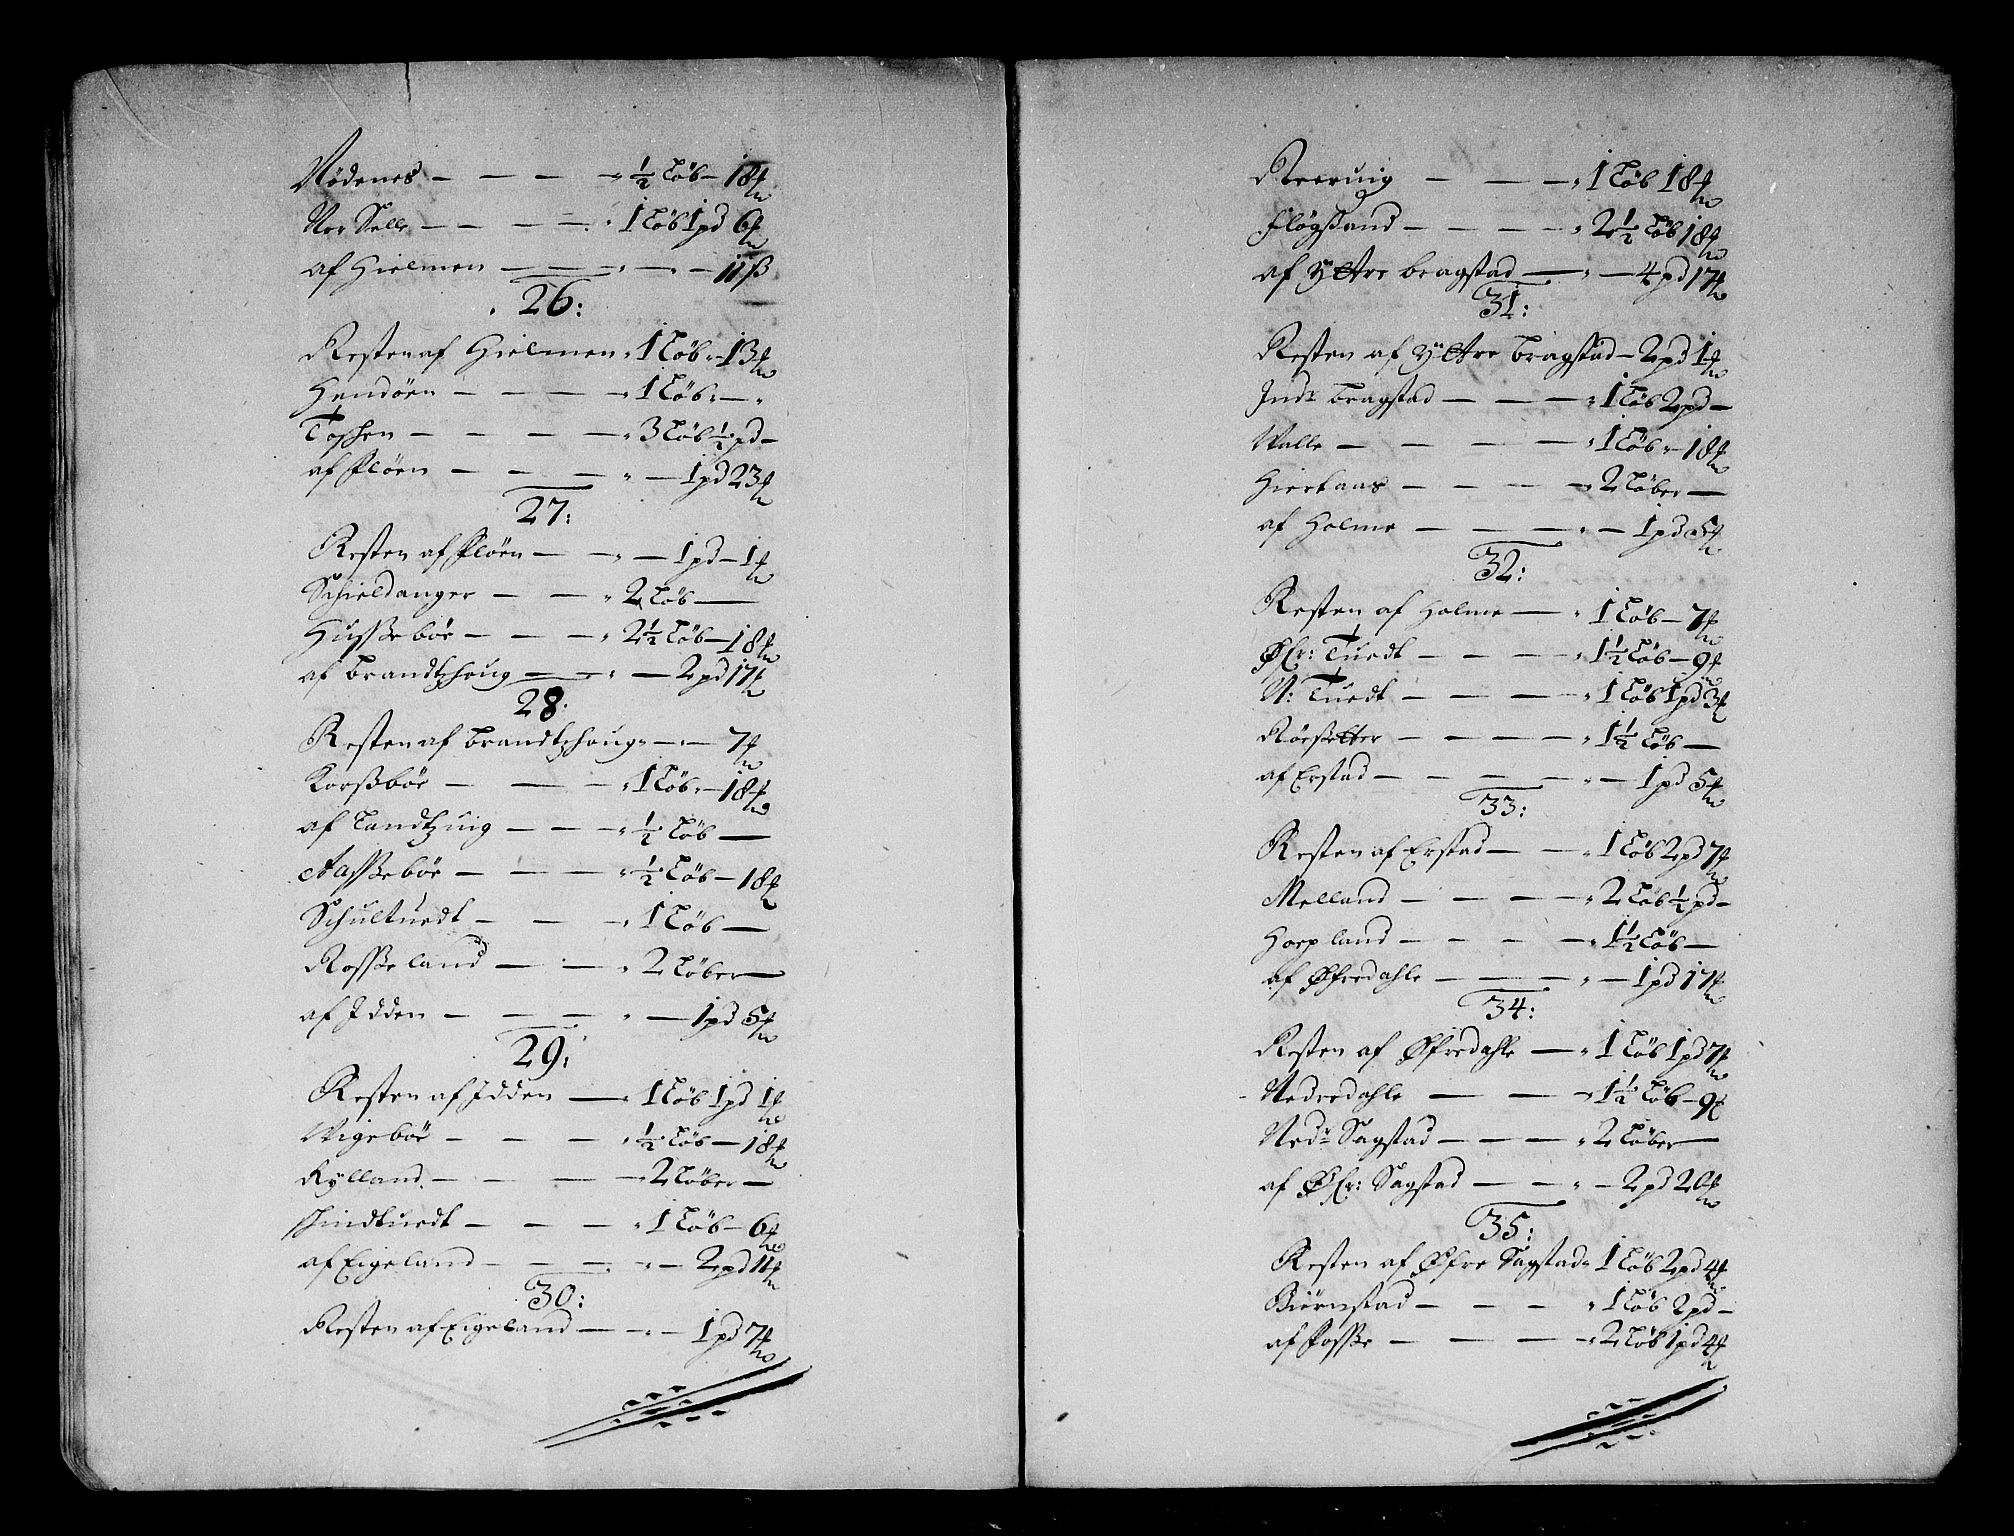 Nödenes — — — — ½ Löb — 18 ℔
Nor Selle — — — — 1 Löb 1 pd 6 ℔
af Hielmen — — — — 11 ß
26:
Resten af Hielmen 1 Löb — 13 ℔
Hendöen — — — — 1 Löb —
Toschen — — — — 3 Löb ½ pd —
af Flöen — — — — 1 pd 23 ℔
27:
Resten af Flöen — — — 1 pd — 1 ℔
Schieldanger — — — 2 Löb —
Husseböe — — — 2½ Löb — 18 ℔
af Brandtzhoug — — — 2 pd 17 ℔
28:
Resten af Brandtzhoug — — 7 ℔
Korßböe — — — 1 Löb — 18 ℔
af Landtzuiig — — — ½ Löb —
Aasseböe — — — ½ Löb — 18 ℔
Schultuedt — — — 1 Löb —
Rosseland — — 2 Löber —
af Idden — — — — 1 pd 5 ℔
29:
Resten af Idden — 1 Löb 1 pd 1 ℔
Wigeböe — — — ½ Löb — 18 ℔
Rylland — — — 2 Löber —
Hindtuedt — — — 1 Löb — 6 ℔
af Eigeland — — — — 2 pd 11 ℔
30:
Resten af Eigeland — — 1 pd 7 ℔
Reeruiig — — — 1 Löb 18 ℔
Flögsand — — — — 2½ Löb 18 ℔
af Yttre bragstad — — 4 pd 17 ℔
31:
Resten af Yttre bragstad — 2 pd 1 ℔
Indr bragstad — — — 1 Löb 2 pd —
Walle — — — — 1 Löb — 18 ℔
Hiertaas — — — — 2 Löber —
af Holme — — — — 1 pd 5 ℔
32:
Resten af Holme — 1 Löb — 7 ℔
Øfr: Tuedt — — — — 1½ Löb — 9 ℔
N: Tuedt — — — — 1 Löb 1 pd 3 ℔
Röesetter — — — — 1½ Löb —
af Erstad — — — — — 1 pd 5 ℔
33:
Resten af Erstad — — 1 Löb 2 pd 7 ℔
Melland — — — — 2 Löb ½ pd —
Hopland — — — — 1½ Löb —
af Øfredahle — — — — 1 pd 17 ℔
34:
Resten af Øfredahle — 1 Löb 1 pd 7 ℔
Nedredahle — — — 1½ Löb — 9 ℔
Nedr Sagstad — — — 2 Löber —
af Øfr: Sagstad — — — 2 pd 20 ℔
35:
Resten af Øfre Sagstad 1 Löb 2 pd 4 ℔
Biörnstad — — — 1 Löb 2 pd —
af Fosse — — — — 2 Löb 1 pd 4 ℔